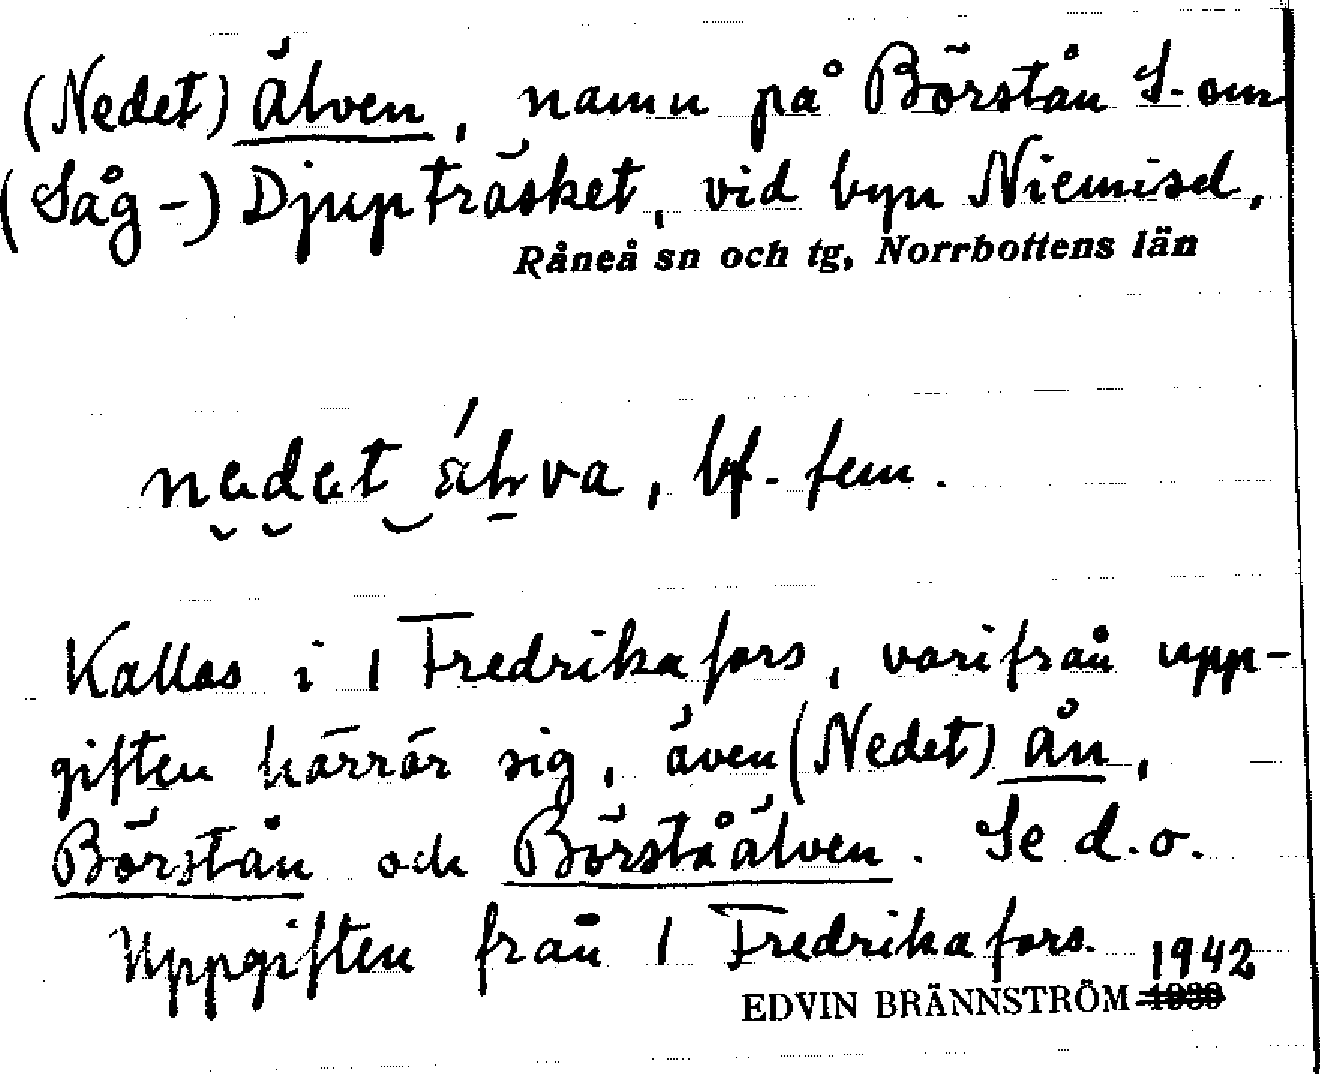 (Nedet) Älven, namn på Börstån S. om
(Såg-) Djupträsket, vid byn Niemisel,
Råneå sn och tg, Norrbottens län
nedet älva, bf. fem.
Kallas i 1 Fredrikafors, varifrån upp-
giften härrör sig, även (Nedet) ån,
Börstån och Börståälven. Se d. o.
Uppgiften från 1 Fredrikafors. 1942
EDVIN BRÄNNSTRÖM 1939